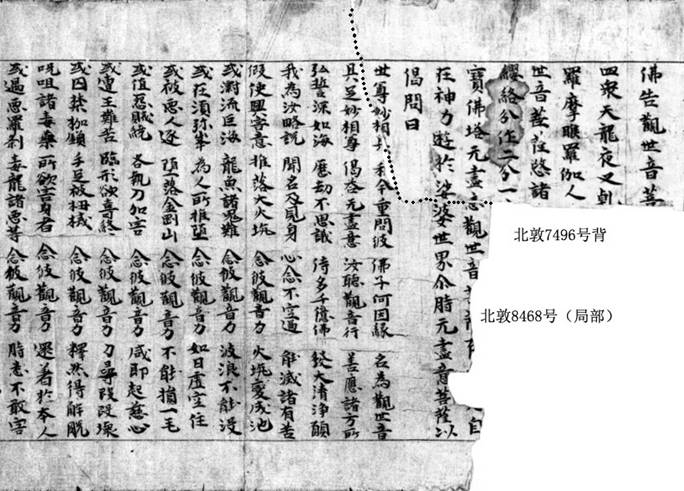 佛告觀世音菩
四衆天龍夜叉乹
羅摩睺羅伽人
世音菩薩愍諸
纓絡分作二分一
寶佛塔无盡意觀世音菩 自
在神力遊於娑婆世界尒時无盡意菩薩以
偈問曰
世尊妙相具 我今重問彼 佛子何因緣 名為觀世音
具足妙相尊 偈荅无盡意 汝聽觀音行 善應諸方所
弘誓深如海 歷劫不思議 侍多千億佛 發大清淨願
我為汝略說 聞名及見身 心念不空過 能滅諸有苦
假使興害意 推落大火坑 念彼觀音力 火坑變成池
或漂流巨海 龍魚諸鬼難 念彼觀音力 波浪不能沒
或在須弥峯 為人所推墮 念彼觀音力 如日虛空住
或被惡人逐 墮落金剛山 念彼觀音力 不能損一毛
或值惡賊繞 各執刀加害 念彼觀音力 咸即起慈心
或遭王難苦 臨形欲壽終 念彼觀音力 刀尋段段壞
或囚禁枷鎖 手足被杻械 念彼觀音力 釋然得解脫
呪咀諸毒藥 所欲害身者 念彼觀音力 還著於本人
或遇惡羅剎 毒龍諸惡等 念彼觀音力 時悉不敢害
北敦7496号背
北敦8468号（局部）